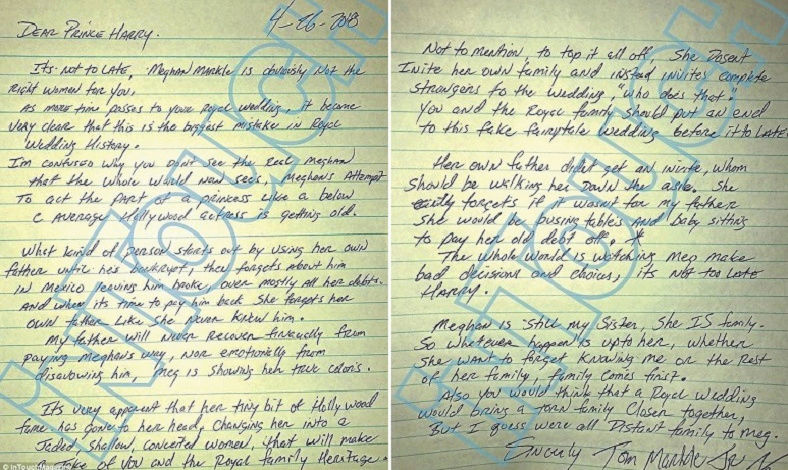 4-26-2018
DEAR PRINCE HARRY.
Its not to LATE, Meghan Markle is obviously Not the
right women for you,
As more time passes to your Royal wedding, it became
very clear that this is the biggest mistake in Royal
Wedding History.
Im confused why you don't see the real meghan
that the whole world now sees, Meghans Attempt
To act the part of a princess like a below
C average Hollywood actress is getting old.
What kind of person starts out by using her own
father until he's bankrupt, then forgets about him
IN Mexico leaving him broke, over mostly all her debts.
And when its time to pay him back she forgets her
own father like she never knew him.
My father will never recover financially from
paying meghans way, nor emotionally from
disavowing him, Meg is showing her true colors.
Its very apparent that her tiny bit of Hollywood
fame has gone to her head, changing her into a
Jaded, Shallow, conceited women, that will make
of you and the Royal family Heritage.
© InTouchMagazine
Not to mention, to top it all off, She Dosent
Invite her own family and instead invites complete
strangers to the wedding, "who does that"
You and the Royal family should put an end
to this fake fairytale wedding before it to LATE
Her own father didn't get an invite, whom
should be walking her down the aisle. She
forgets if it wasn't for my father
She would be busing tables AND baby sitting
to pay her old debt off. *
The whole world is watching meg make
bad decisions and choices, its not too LATE
HARRY.
Meghan is still my sister, She IS family.
So whatever happen is up to her, whether
She want to forget knowing me or the Rest
of her family, family comes first.
Also you would think that a Royal wedding
would bring a torn family closer together,
But I guess were all Distant family to Meg.
Sincerly Tom Markle Jr
InTouch
InTouch